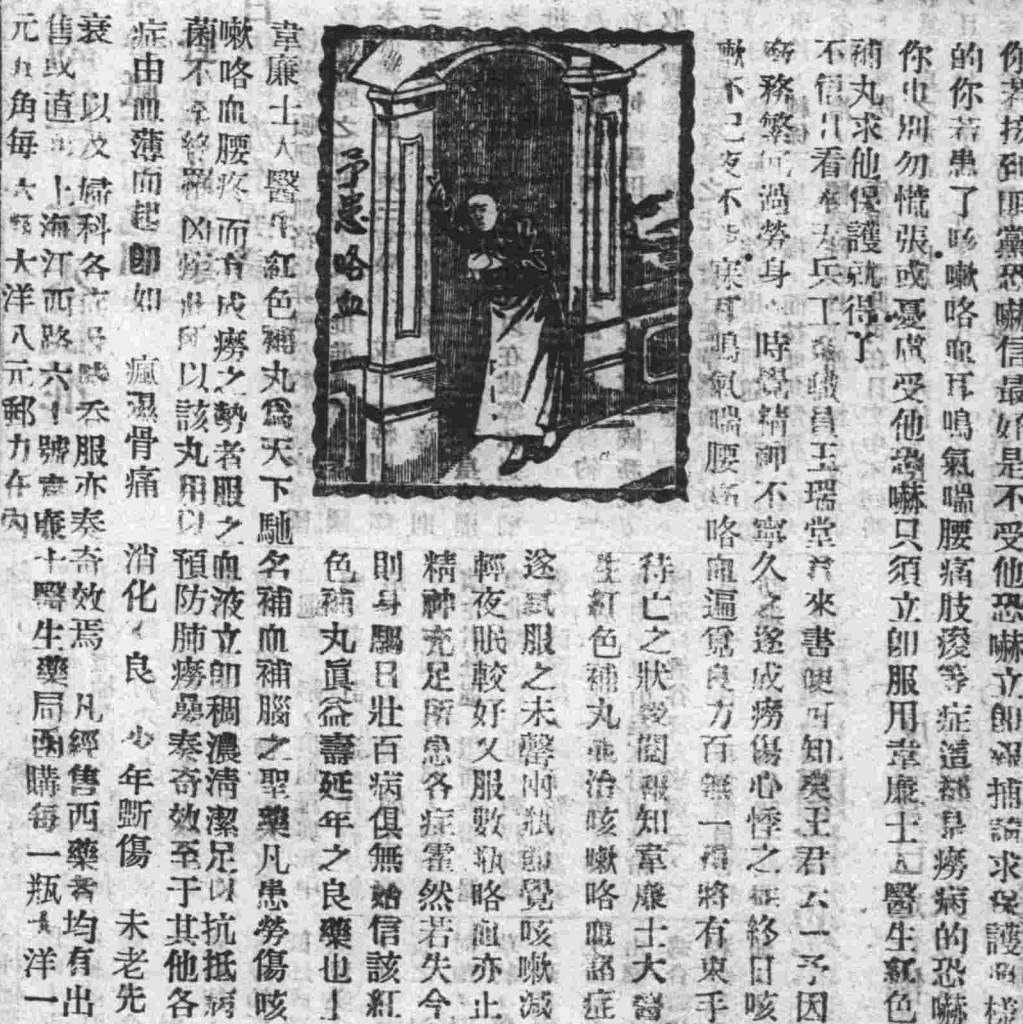 你若接到匪黨恐嚇信最好是不受他恐嚇立卽報捕請求保護同樣
的你若患了咳嗽咯血耳鳴氣喘腰痛肢痠等症這都是癆病的恐嚇
你也別勿慌張或憂慮受他恐嚇只須立卽服用韋廉士大醫生紅色
補丸求他優護就得了
不信且看 兵工 職員王瑞堂君來書便可知矣王君云予因
廠務繁 過勞身 時覺精神不寧久之遂成癆傷心悸之症終日咳
嗽不已夜不 寐耳鳴氣喘腰痛咯血遍覓良方百無一 將有束手
待亡之狀 閱報知韋廉士大醫
生紅色補丸 治咳嗽咯血諸症
遂試服之未罄兩瓶卽覺咳嗽減
輕夜眠較好又服數瓶咯血亦止
精神充足所患各症霍然若失今
則身軀日壯百病俱無始信該紅
色補丸眞益壽延年之良藥也
予患咯血
韋廉士大醫生紅色補丸爲天下馳名補血補腦之聖藥凡患勞傷咳
嗽咯血腰疼而有成癆之勢者服之血液立卽稠濃淸潔足以抗抵病
菌不 終罹凶 此所以該丸用以預防肺癆 奏奇效至于其他各
症由血薄而起卽如 瘋濕骨痛 消化不良 少年斲傷 未老先
衰 以及婦科各症 呑服亦奏奇效焉 凡經售西藥者均有出
售或直向上海江西路六十號韋廉士醫生藥局函購每一瓶大洋一
元五角每六瓶大洋八元郵力在內